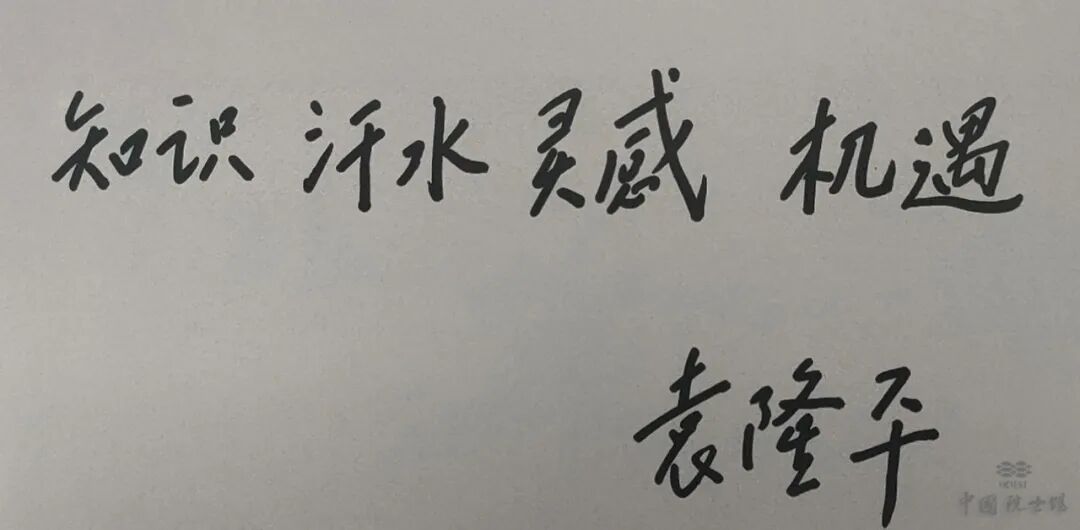 知识 汗水 灵感 机遇
袁隆平
中国院士馆